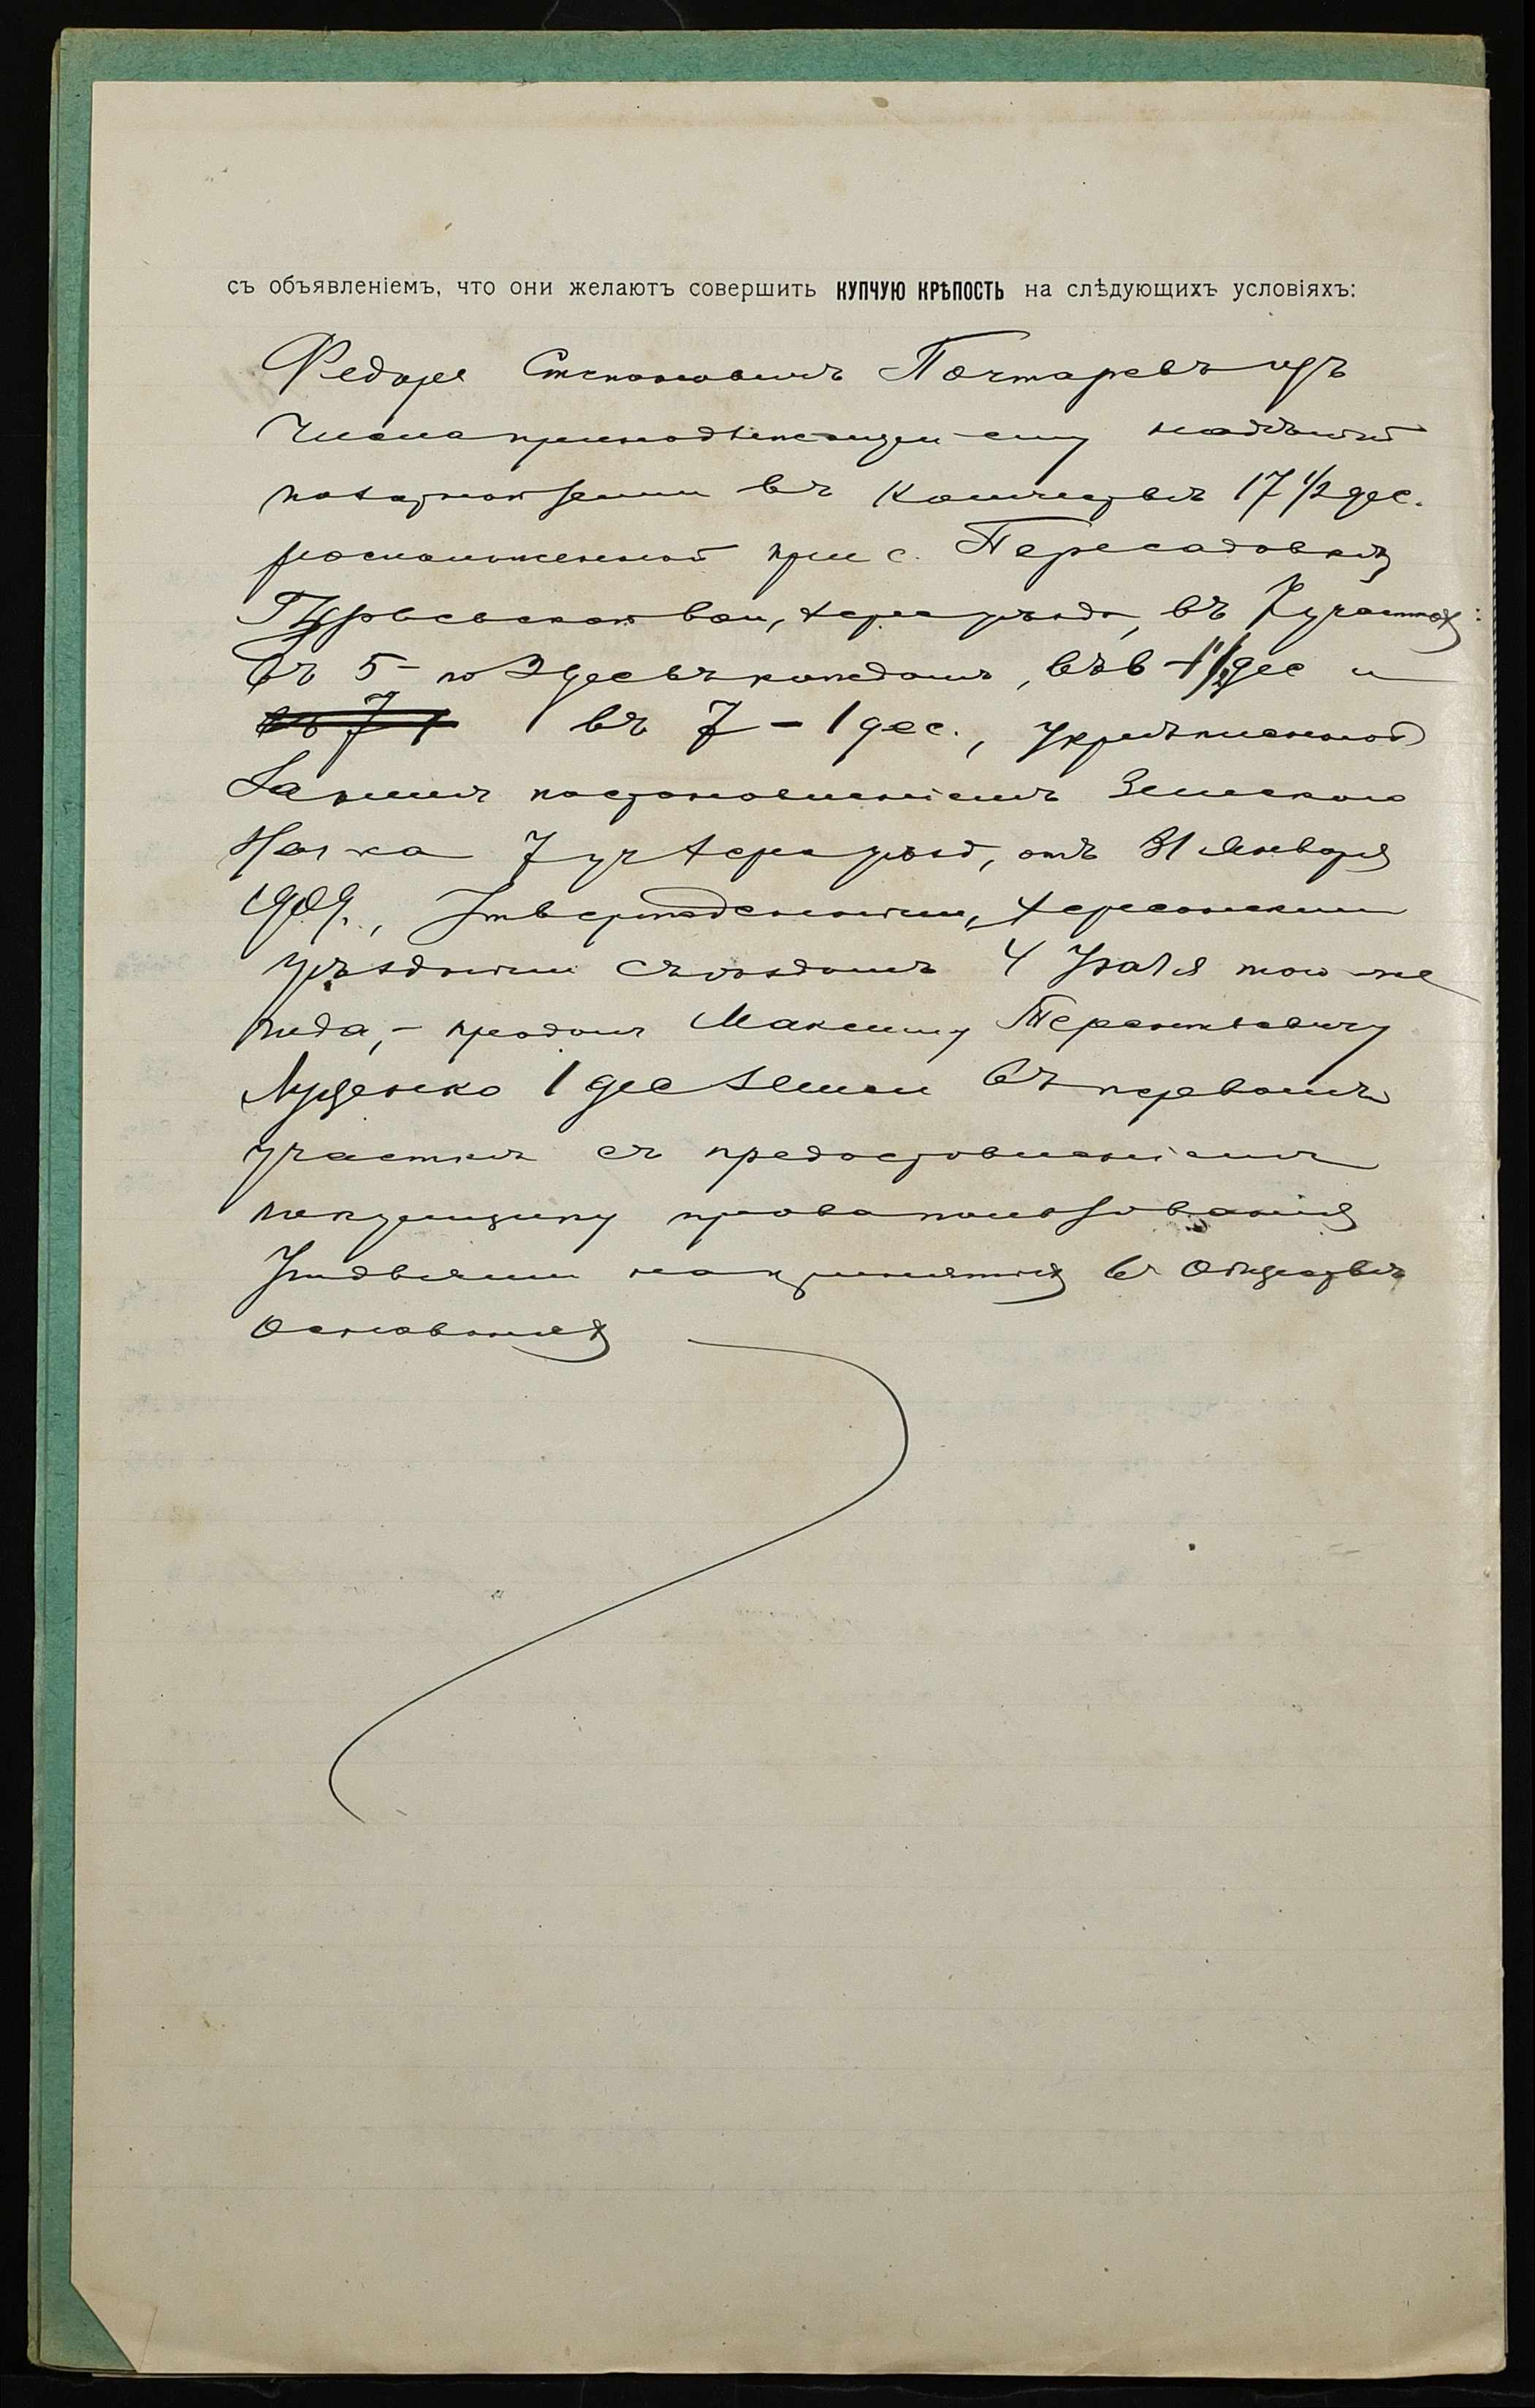 съ объявленіемъ, что они желаютъ совершить КУПЧУЮ КРѢПОСТЬ на слѣдующихъ условіяхъ:
Федоръ Степановичъ Почтаревъ изъ
числа принадлежащей ему надѣльной
земли въ количествѣ 17 1/2 дес.
расположенной при с. Пересадовкѣ
Гурьевской вол, Херс. уѣзда, въ 7 участкахъ:
въ 5 - по 3 дес въ каждомъ, въ 6 - 1 1/2 дес и
въ 7 - 1 дес., укрѣпленной
за нимъ постановленіемъ Земскаго
Нач-ка 7 уч Херс уѣзд, отъ 31 Января
1909., утвержденнымъ Херсонскимъ
уѣзднымъ съѣздомъ 4 того же
года, - продалъ Максиму Терентьевичу
Луценко 1 дес земли въ первомъ
участкѣ съ предоставленіемъ
покупщику права пользованія
угодьями на принятыхъ въ обществѣ
основаніяхъ